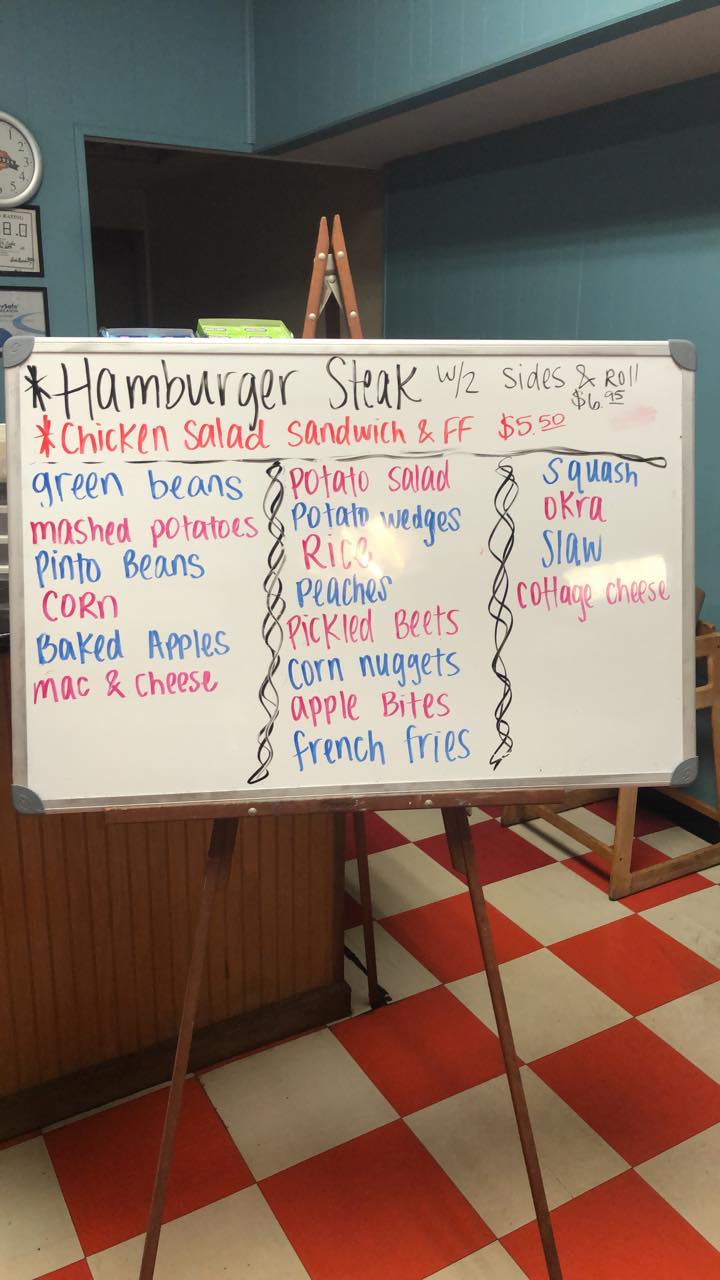 1
2
3
4
5
RATING
8.0
*Hamburger Steak w/2 sides & Roll
$6.95
*Chicken Salad Sandwich & FF $5.50
green beans
mashed potatoes
Pinto Beans
CORN
Baked Apples
mac & cheese
Potato salad
Potato wedges
Rice
Peaches
Pickled Beets
corn nuggets
apple Bites
french fries
Squash
okra
Slaw
cottage cheese